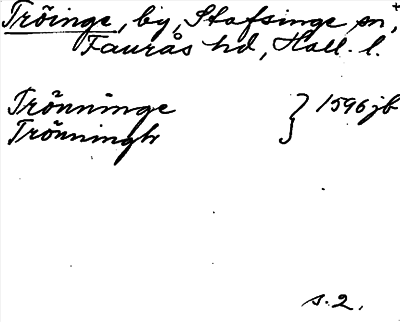 Tröinge, by, Stafsinge sn,
Faurås hd, Hall. l.
Trönninge } 1596 jb
Trönningh
s. 2.